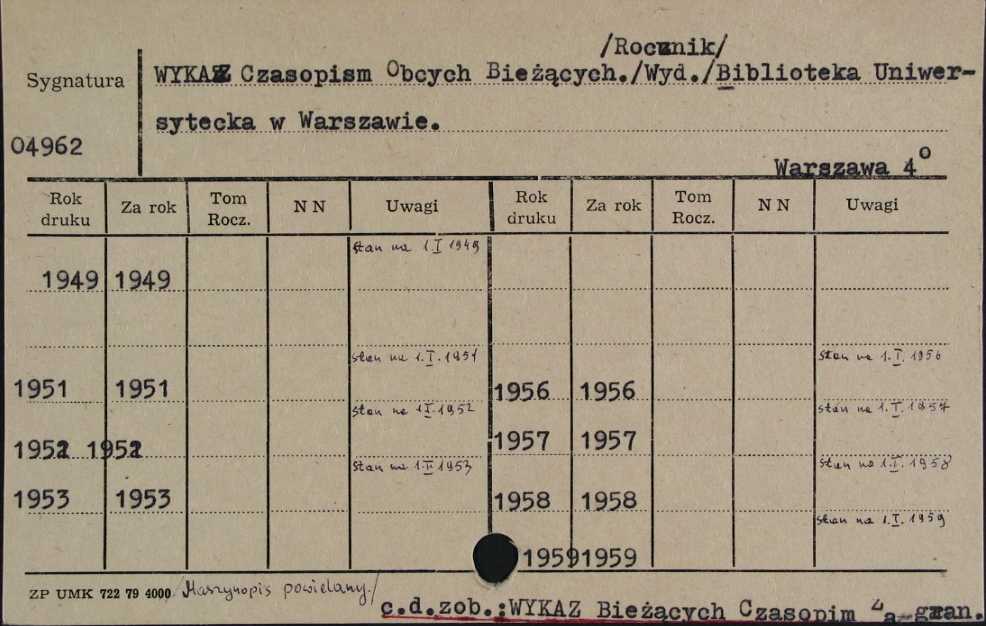 /Rocznik/
Sygnatura WYKAZ Czasopism Obcych Bieżących./Wyd./Biblioteka Uniwer-
sytecka w Warszawie.
04962
Warszawa 4°
Rok druku Za rok Tom Rocz. N N Uwagi Rok druku Za rok Tom Rocz. N N Uwagi
stan na 1.I 1949
1949 1949
stan na 1.I.1951 stan na 1.I.1956
1951 1951 1956 1956
stan na 1.I.1952 stan na 1.I.1957
1952 1952 1957 1957
stan na 1.II.1953 stan na 1.I.1958
1953 1953 1958 1958
stan na 1.I.1959
1959 1959
ZP UMK 722 79 4000 /Maszynopis powielany./
c.d.zob.:WYKAZ Bieżących Czasopim Za-gran.